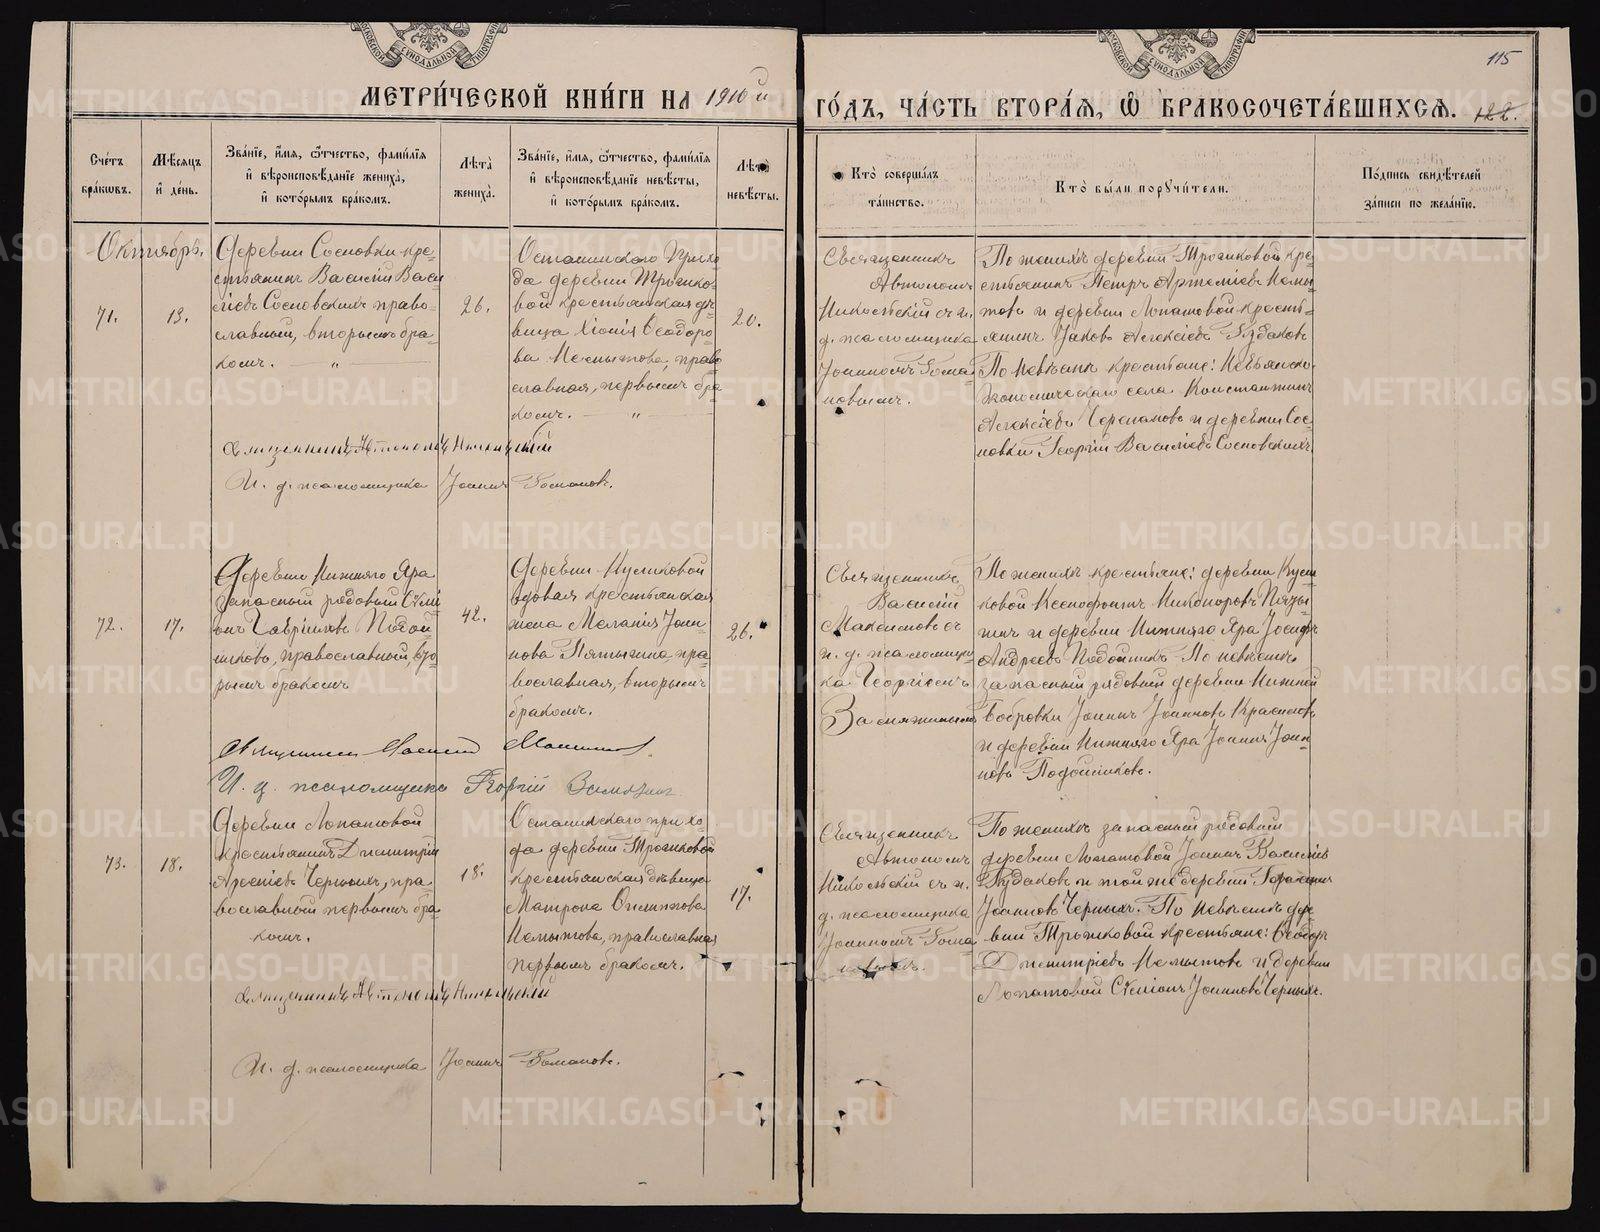 МЕТРИ́ЧЕСКОЙ КНИ́ГИ НА 1910 й
ГО́ДЪ, ЧА́СТЬ ВТОРА́Я, Ѡ БРАКОСОЧЕТА́ВШИХСѦ.
115
122.
Сче́тъ бра́кѡвъ.
Мѣ́сѧцъ и҆ де́нь.
Зва́нїе, и҆́мѧ, ѻ҆́тчество, фами́лїѧ и҆ вѣроисповѣ́данїе жениха̀, и҆ кото́рымъ бра́комъ.
Лѣ́та жениха̀.
Зва́нїе, и҆́мѧ, ѻ҆́тчество, фами́лїѧ и҆ вѣроисповѣ́данїе невѣ́сты, и҆ кото́рымъ бра́комъ.
Лѣ́та невѣ́сты.
Кто̀ соверша́лъ та́инство.
Кто̀ бы́ли поручи́тели.
По́дпись свидѣ́телей за́писи по жела́нїю.
Октябрь.
71.
13.
Деревни Сосновки кре-
стьянинъ Василій Васи
ліевъ Сосновскихъ право-
славный, вторымъ бра-
комъ. — „ —
26.
Останинскаго прихо-
да деревни Трошко-
вой крестьянская дѣ-
вица Хіонія Ѳеодоро-
ва Немытова, право
славная, первымъ бра-
комъ. — „ —
20.
Священникъ
Автономъ
Никольскій съ и.
д. псаломщика
Іоанномъ Рома-
новымъ.
По женихѣ деревни Трошковой кре-
стьянинъ Петръ Артеміевъ Немы-
товъ и деревни Лопатовой кресть-
янинъ Іаковъ Алексіевъ Рудаковъ
По невѣстѣ крестьяне: Невьянско-
Экономическаго села Константинъ
Алексіевъ Черепановъ и деревни Сос-
новки Георгій Василіевъ Сосновскихъ.
Священникъ Автономъ Никольскій
И. д. псаломщика Іоаннъ Романовъ.
72.
17.
Деревни Нижняго Яра
запасный рядовый Сѵмі
онъ Гавріиловъ Подой
никовъ, православный, вто-
рымъ бракомъ
42.
Деревни Куликовой
вдовая крестьянская
жена Меланія Іоан-
нова Пятыгина, пра-
вославная, вторымъ
бракомъ.
26.
Священникъ
Василій
Максимовъ съ
и. д. псаломщи-
ка Георгіемъ
По женихѣ крестьяне: деревни Кули
ковой Ксенофонтъ Никаноровъ Пяты-
гинъ и деревни Нижняго Яра Іосифъ
Андреевъ Подойникъ. По невѣстѣ
запасный рядовый деревни Нижней
Бобровки Іоаннъ Іоанновъ Красиловъ
и деревни Нижняго Яра Іоаннъ Іоан-
новъ Подойниковъ.
Священникъ Василій Максимовъ
И. д. псаломщика Георгій
73.
18.
Деревни Лопатовой
крестьянинъ Димитрій
Арсеніевъ Черныхъ, пра-
вославный первымъ бра-
комъ.
18.
Останинскаго прихо-
да деревни Трошковой
крестьянская дѣвица
Матрона Филиппова
Немытова, православная
первымъ бракомъ.
17.
Священникъ
Автономъ
Никольскій съ и.
д. псаломщика
Іоанномъ Рома
новымъ.
По женихѣ запасный рядовый
деревни Лопатовой Іоаннъ Василіевъ
Рудаковъ и той же деревни Герасимъ
Іоанновъ Черныхъ. По невѣстѣ дере
вни Трошковой крестьяне: Ѳеодоръ
Димитріевъ Немытовъ и деревни
Лопатовой Сѵмеонъ Іоанновъ Черныхъ.
Священникъ Автономъ Никольскій
И. д. псаломщика Іоаннъ Романовъ.
METRIKI.GASO-URAL.RU